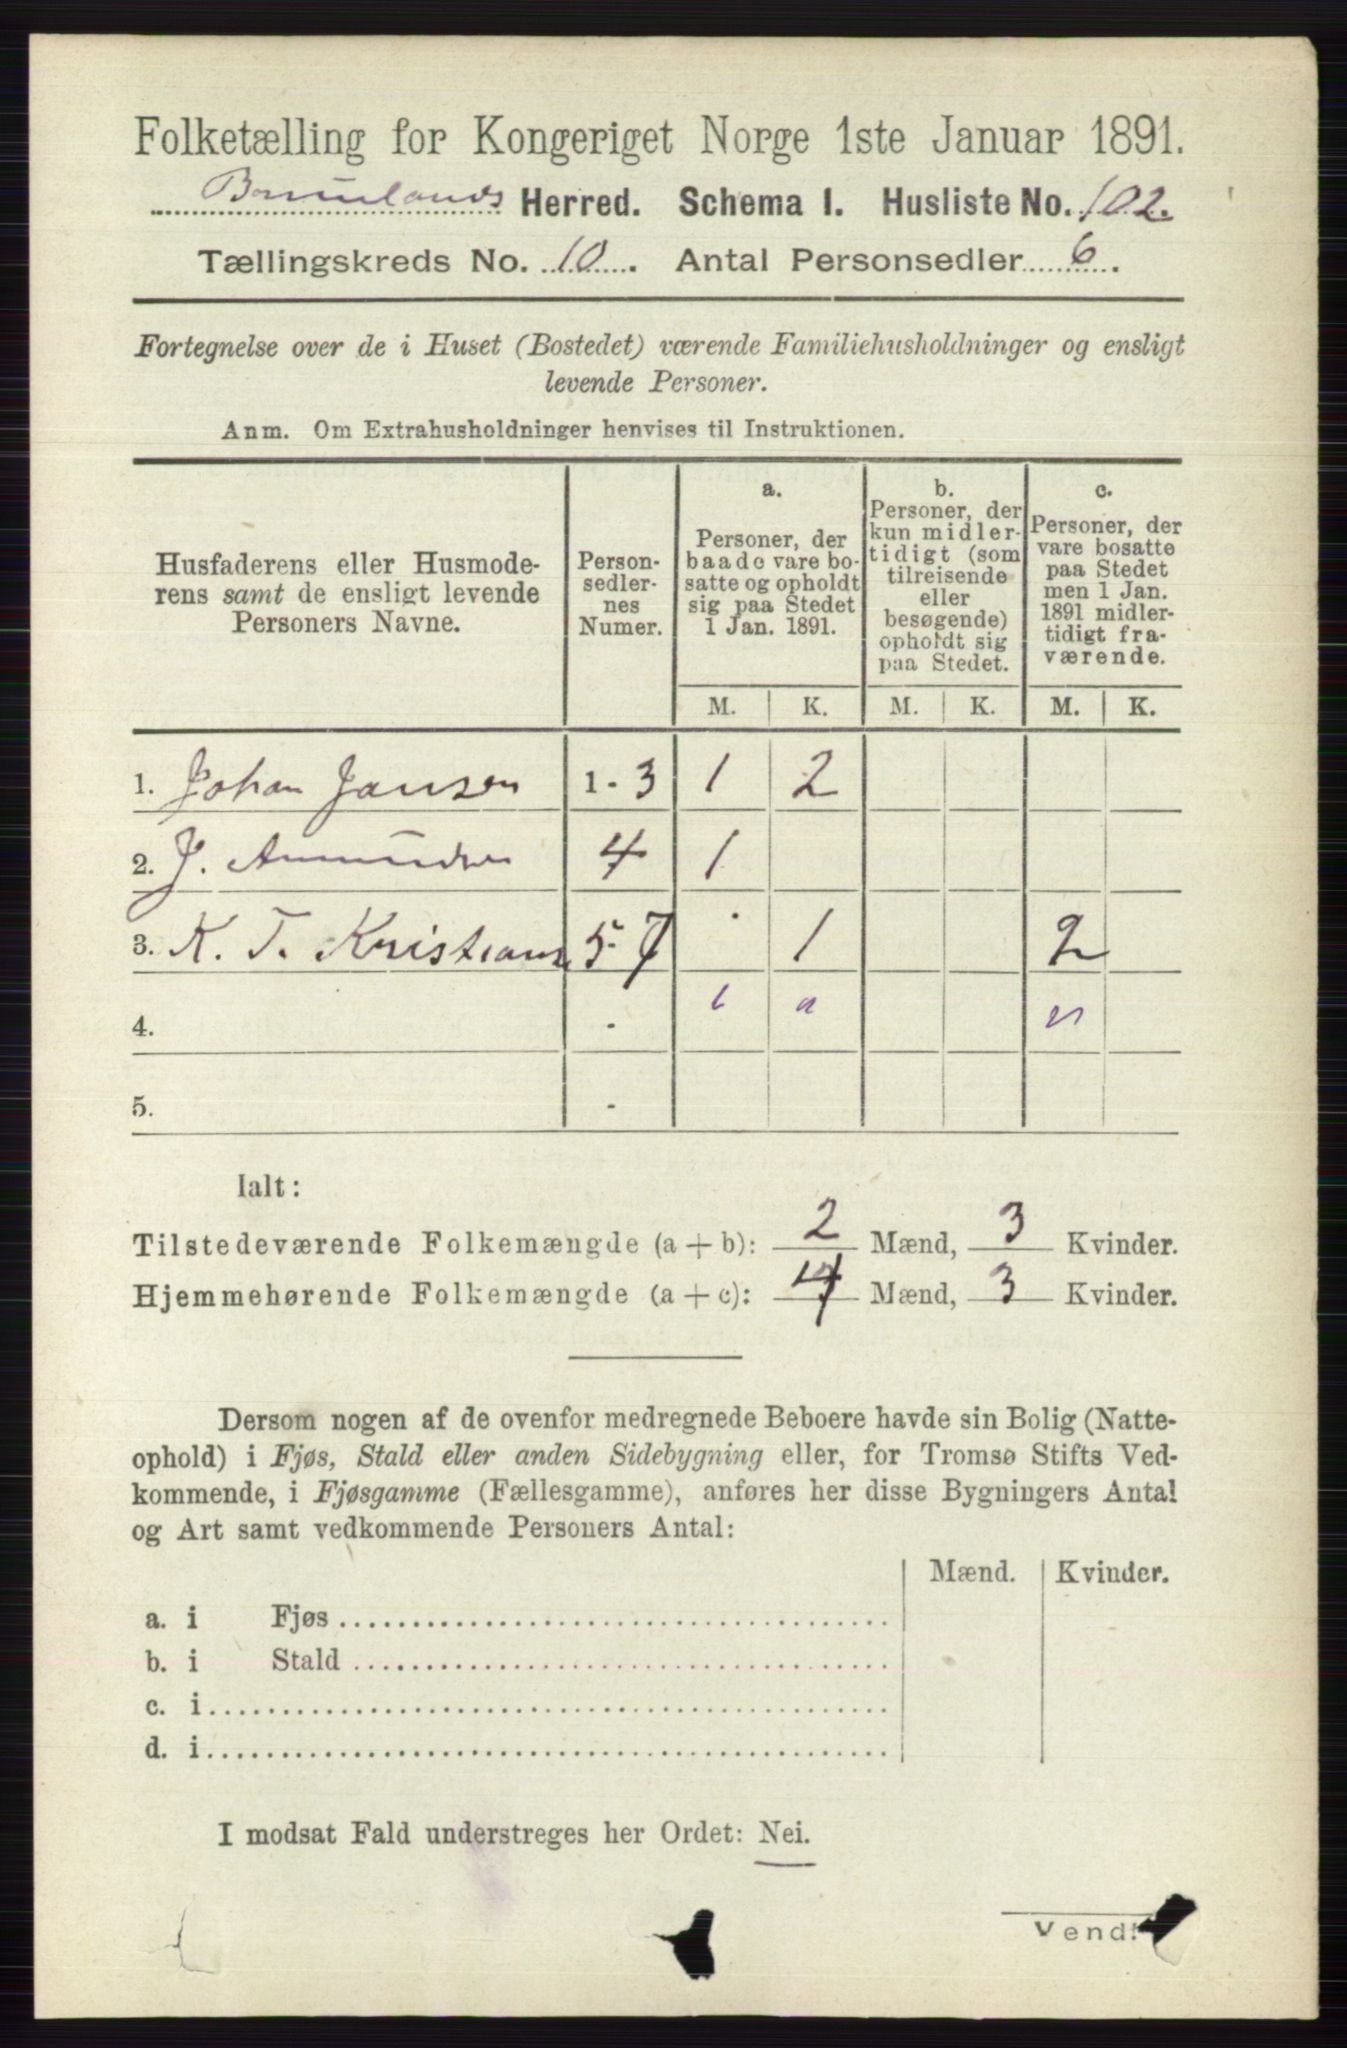 Folketælling for Kongeriget Norge 1ste Januar 1891.
Brunlanäs Herred. Schema I. Husliste No. 102.
Tællingskreds No. 10. Antal Personsedler 6.
Fortegnelse over de i Huset (Bostedet) værende Familiehusholdninger og ensligt
levende Personer.
Anm. Om Extrahusholdninger henvises til Instruktionen.
Husfaderens eller Husmode-
rens samt de ensligt levende
Personers Navne.
Person-
sedler-
nes
Numer.
a.
Personer, der
baade vare bo-
satte og opholdt
sig paa Stedet
1 Jan. 1891.
b.
Personer, der
kun midler-
tidigt (som
tilreisende
eller
besøgende)
opholdt sig
paa Stedet.
c.
Personer, der
vare bosatte
paa Stedet
men 1 Jan.
1891 midler-
tidigt fra-
værende.
M. K. M. K. M. K.
1. Johan Jansen 1 - 3 1 2
2. J. Amundsen 4 1
3. K. T. Kristians 5 - 7 1 2
4. -
5. -
Ialt:
Tilstedeværende Folkemængde (a + b): 2 Mænd, 3 Kvinder.
Hjemmehørende Folkemængde (a + c): 4 Mænd, 3 Kvinder.
Dersom nogen af de ovenfor medregnede Beboere havde sin Bolig (Natte-
ophold) i Fjøs, Stald eller anden Sidebygning eller, for Tromsø Stifts Ved-
kommende, i Fjøsgamme (Fællesgamme), anføres her disse Bygningers Antal
og Art samt vedkommende Personers Antal:
Mænd. Kvinder.
a. i Fjøs
b. i Stald
c. i
d. i
I modsat Fald understreges her Ordet: Nei.
Vend!